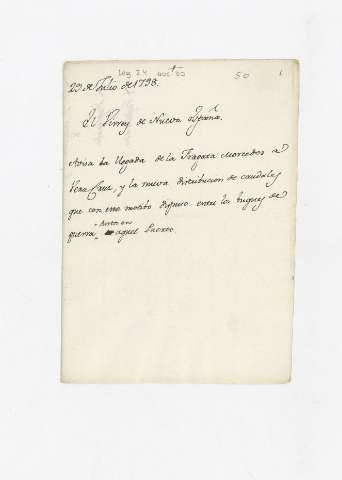 Leg 24 doc 50 50 1
23 de Julio de 1798.
El Virrey de Nueva España.
Avisa la llegada de la Fragata Mercedes a
Vera Cruz, y la nueva distribucion de caudales
que con este motibo dispuso entre los buques de
surtos en
guerra aquel Puerto.